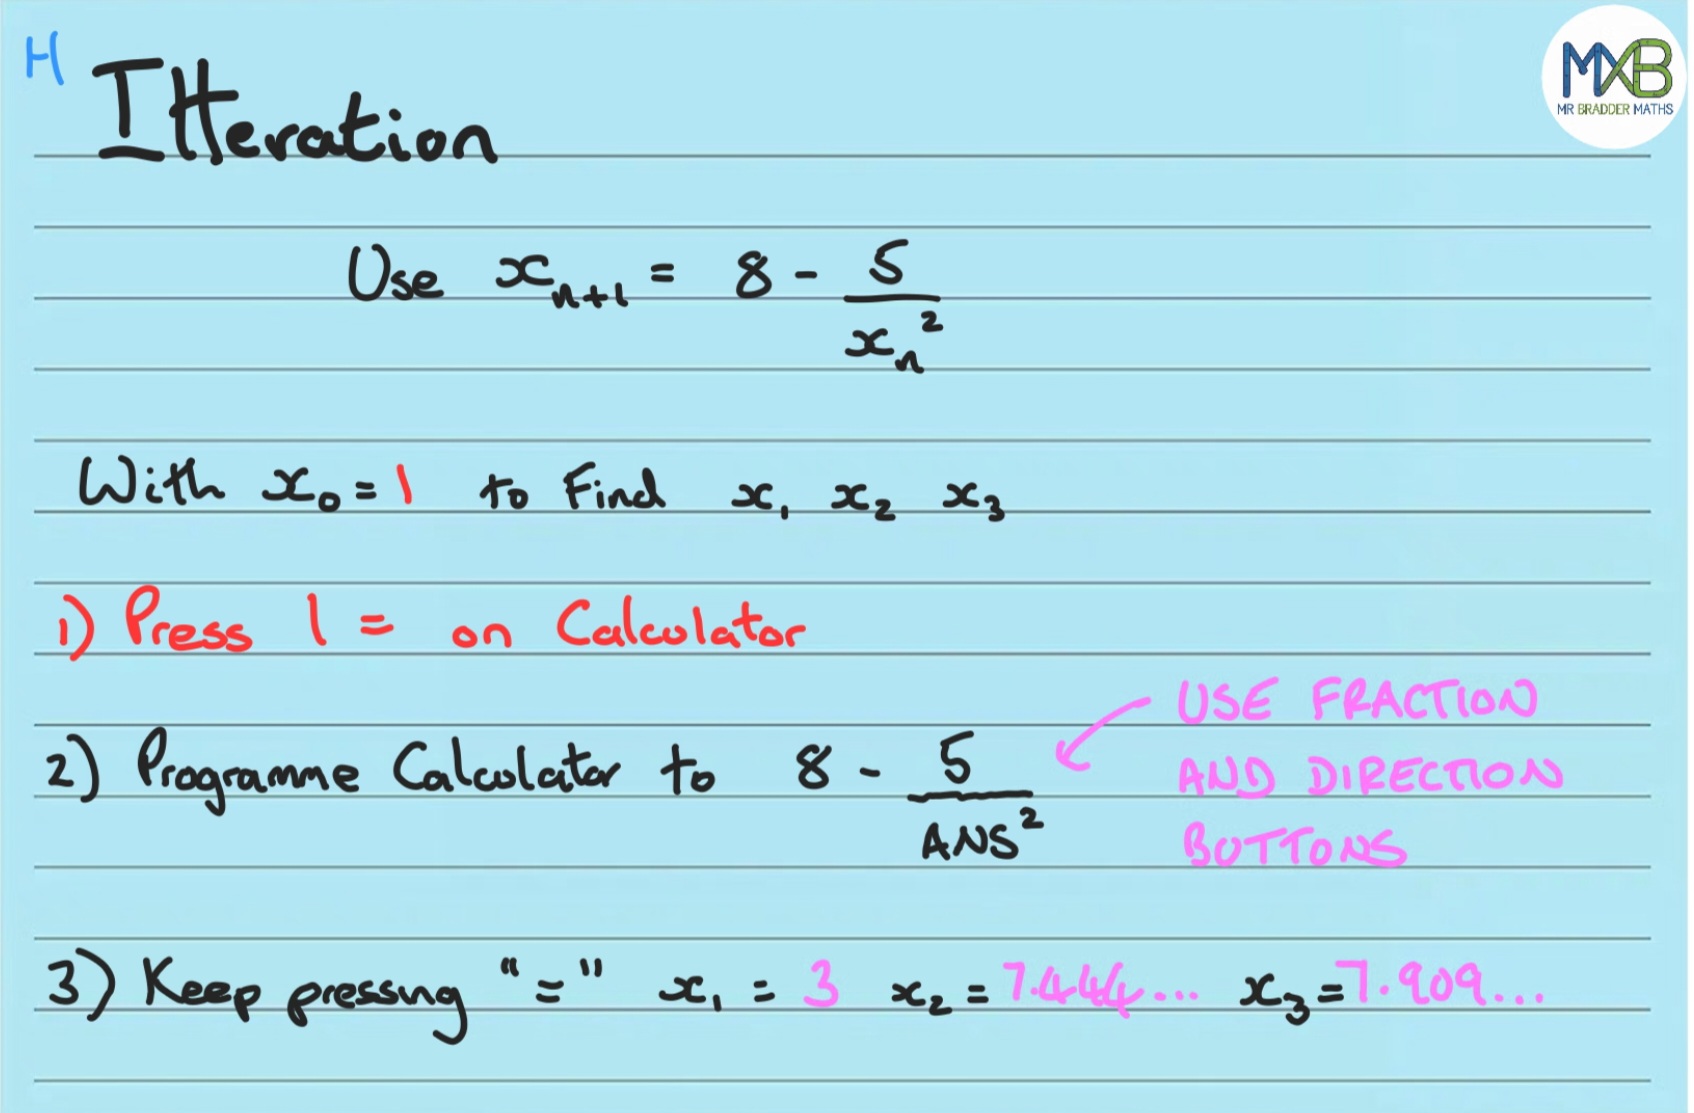 H
Itteration
MXB
MR BRADDER MATHS
Use xₙ₊₁ = 8 - 5/xₙ²
With x₀ = 1 to Find x₁ x₂ x₃
1) Press 1 = on Calculator
2) Programme Calculator to 8 - 5/ANS²
USE FRACTION
AND DIRECTION
BUTTONS
3) Keep pressing "=" x₁ = 3 x₂ = 7.444... x₃ = 7.909...